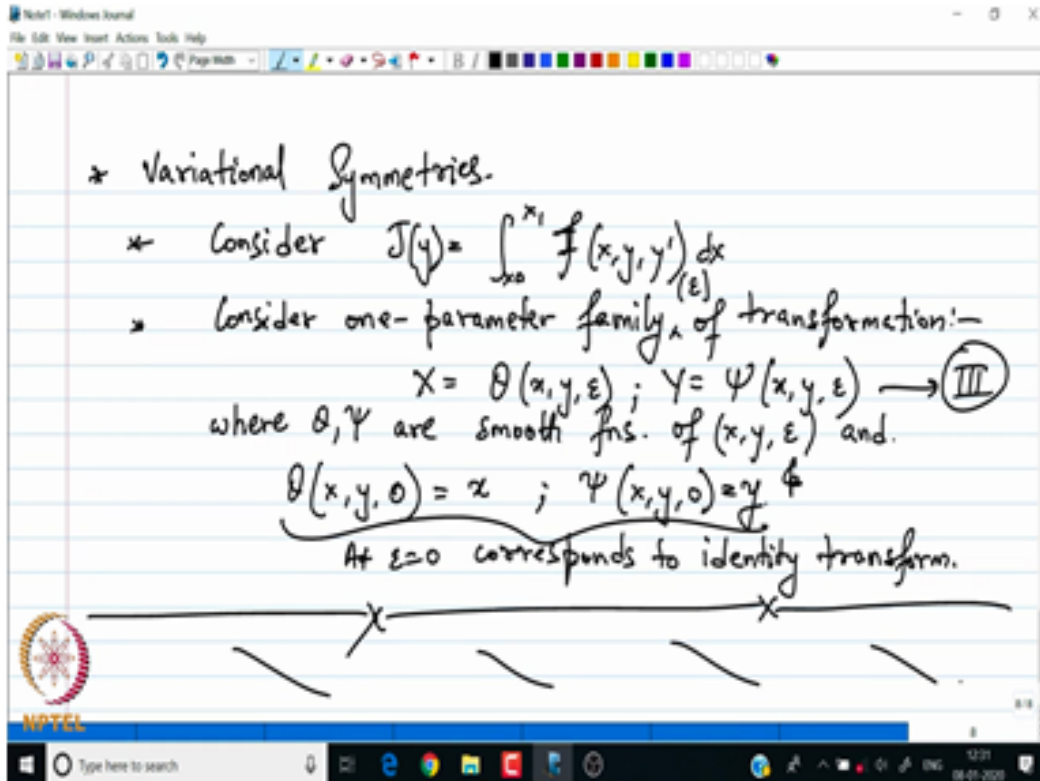 Note1 - Windows Journal
File Edit View Insert Actions Tools Help
Page Width
B I
* Variational Symmetries.
* Consider J(y) = ∫_{x0}^{x1} f(x, y, y') dx
* Consider one-parameter family (ε) of transformation:-
X = θ(x, y, ε) ; Y = Ψ(x, y, ε) → III
where θ, Ψ are smooth fns. of (x, y, ε) and.
θ(x, y, 0) = x ; Ψ(x, y, 0) = y
At ε=0 corresponds to identity transform.
NPTEL
8/18
8
Type here to search
ENG
12:31